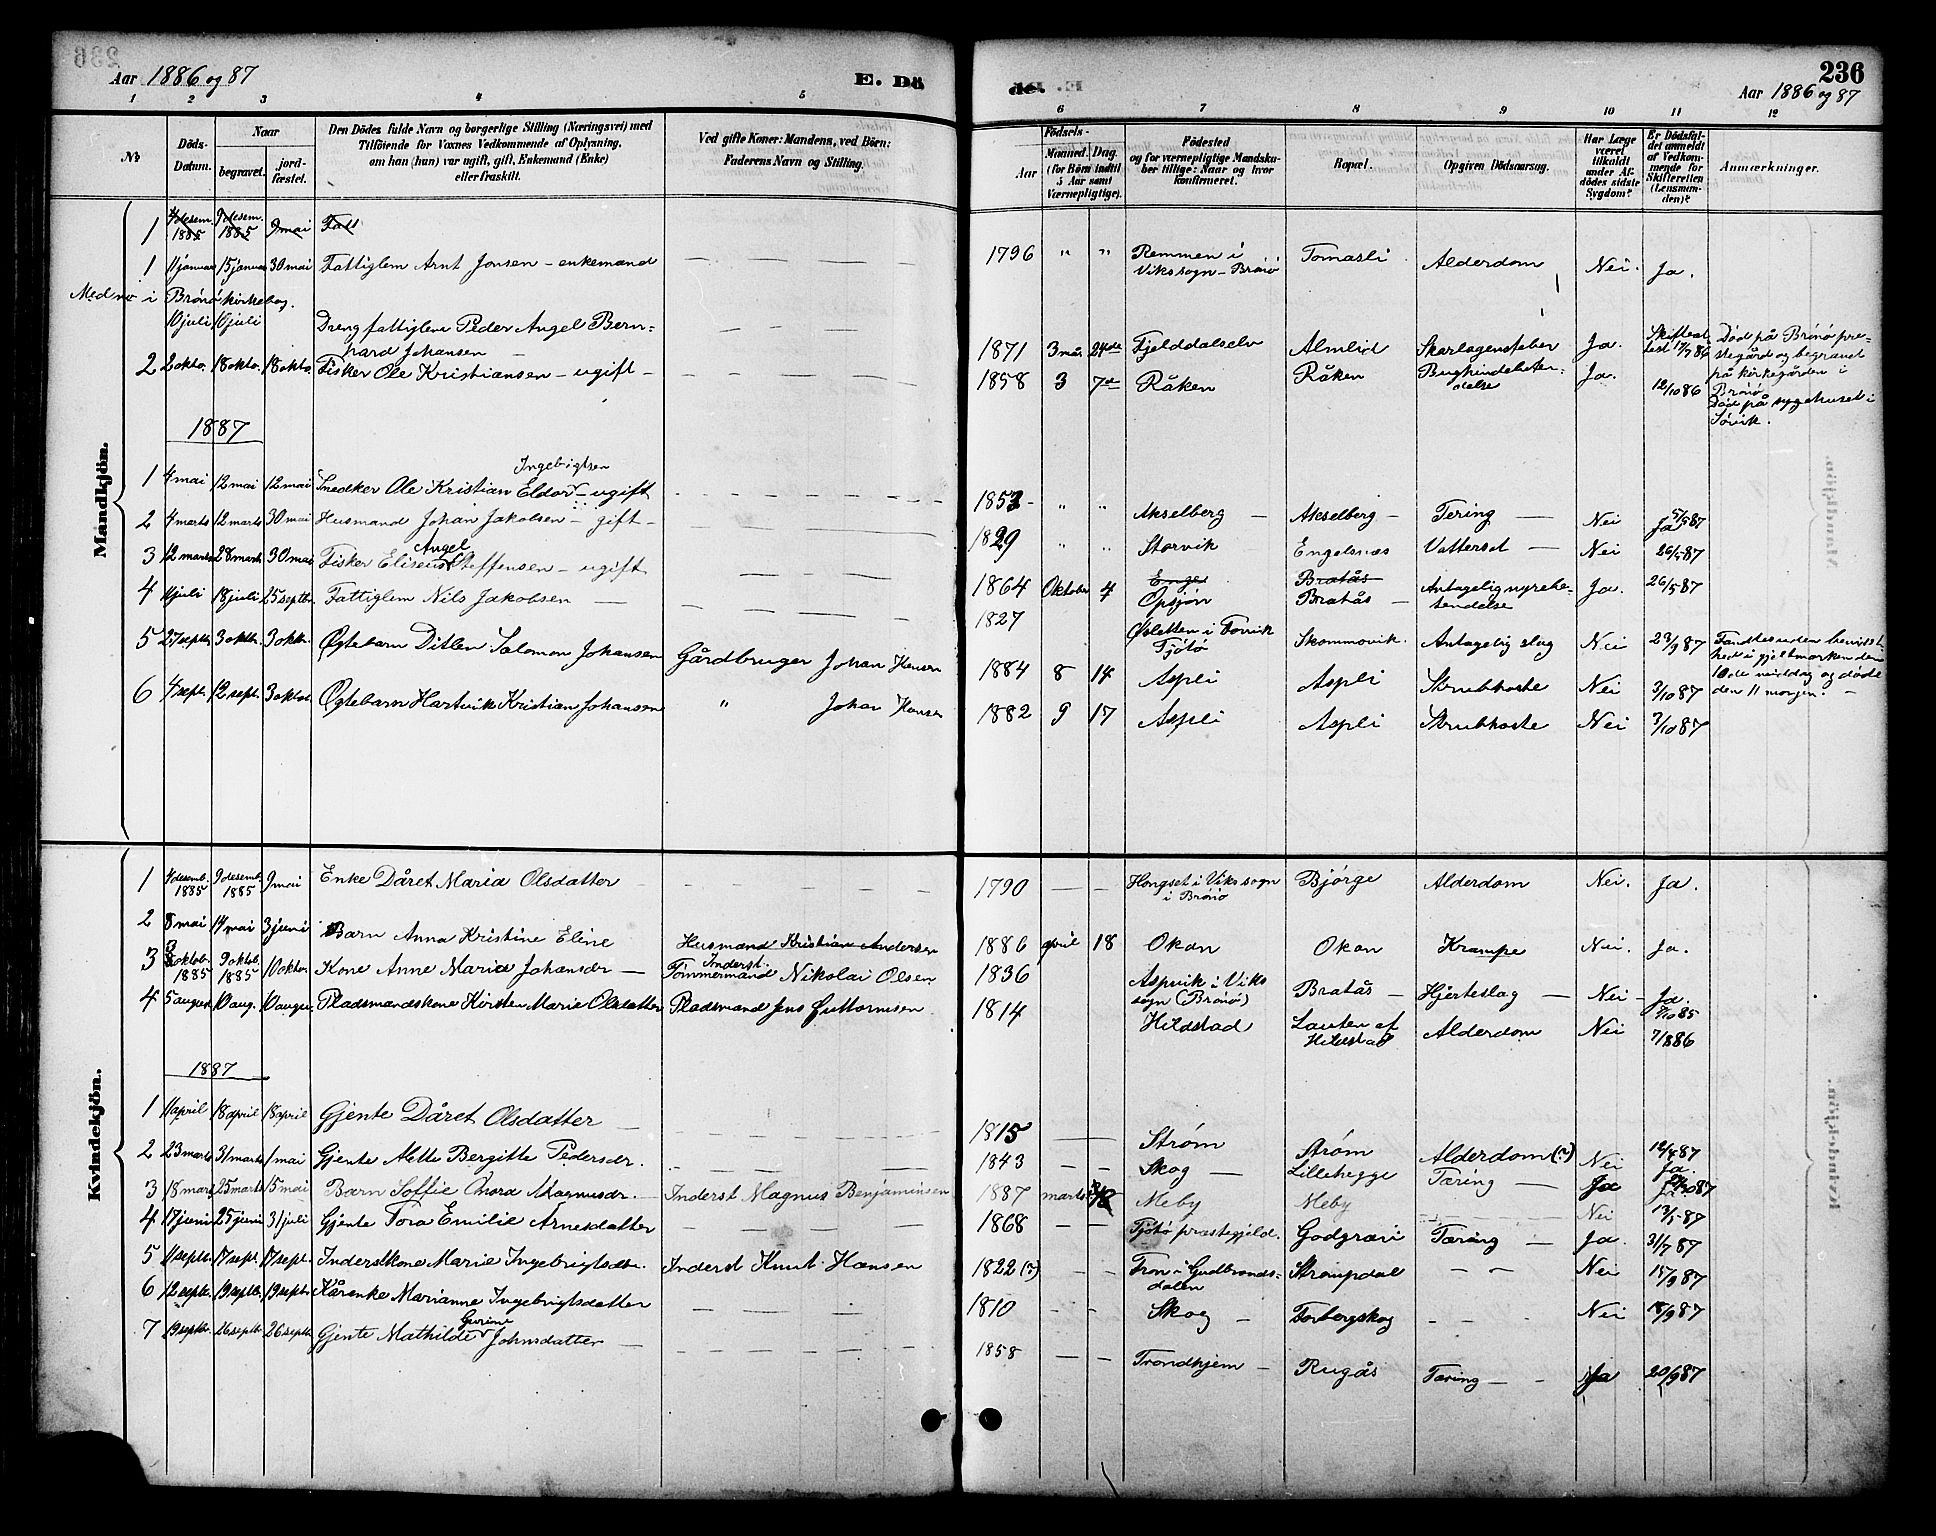 Aar 1886 og 87
E. Dö
de.
236
Aar 1886 og 87
1 2 3 4 5 6 7 8 9 10 11 12
No
Döds-Datum.
Naar
begravet.
jord-fæstet.
Den Dödes fulde Navn og borgerlige Stilling (Næringsvei) med
Tilföiende for Voxnes Vedkommende af Oplysning,
om han (hun) var ugift, gift, Enkemand (Enke)
eller fraskilt.
Ved gifte Koner: Mandens, ved Börn:
Faderens Navn og Stilling.
Födsels-
Aar
Maaned. Dag.
(for Börn indtil
5 Aar samt
Værnepligtige).
Födested
og for værnepligtige Mandsku-
ber tillige: Naar og hvor
konfirmeret.
Bopæl.
Opgiven Dödsaarsag.
Har Læge
været
tilkaldt
under Af-
dödes sidste
Sygdom?
Er Dödsfal-
det anmeldt
af Vedkom-
mende for
Skifteretten
(Lensman-
den)?
Anmærkninger.
Mandkjön.
1 4 desem. 1885 9 desem. 1885 9 mai Fatt
1 11 januar 15 januar 30 mai Fattiglem Arnt Jonsen - enkemand 1796 " " Remmen i Viks sogn - Brønø Tomasli Alderdom Nei. Ja.
Med no i Brønø kirkebog.
10 juli 10 juli Dreng fattiglem Peder Angel Bern-
hard Johansen 1871 3 mai 24de Fjelddalselv Almlid Skarlagensfeber Ja. Skifteat-test 17/7 86 Død på Brønø pre-
stegård og begravet
på kirkegården i
Brønø.
2 2 okto. 18 oktb. 18 oktb. Fisker Ole Kristiansen - ugift - 1858 3 7de Råken Råken Bughindebeten-
delse Ja. 12/10 86 Død på sygehuset i
Søvik.
1887
1 4 mai 12 mai 12 mai Snedker Ole Kristian Ingebrigtsen Eldor - ugift 1853 - " " Akselberg - Akselberg - Tering - Nei Ja 5/5 87
2 4 marts 12 marts 30 mai Husmand Johan Jakobsen - gift - 1829 " " Storvik Engelsnes Vattersot - Nei 26/5 87
3 12 marts 28 marts 30 mai Fisker Eliseus Angel Steffensen - ugift 1864 Oktober 4 Enge Opsjøn Bratås Bratås - Antagelig nyrebe-
tendelse Ja. 26/5 87
4 11 juli 18 juli 25 septbr. Fattiglem Nils Jakobsen - 1827 Øsletten i Forvik Tjøtø Skommovik. Antagelig slag Nei 23/9 87 Fandtes uden bevidst-
hed i gjeltmarken den
10de middag og døde
den 11 morgen. -
5 27 septb. 3 oktb. 3 oktb. Øgtebarn Ditlev Salomon Johansen Gårdbruger Johan Hansen 1884 8 14 Aspli Aspli Strubhoste Nei 3/10 87
6 4 sept. 12 sept. 3 oktob. Øgtebarn Hartvik Kristian Johansen " Johan Hansen 1882 9 17 Aspli Aspli Strubhoste Nei 3/10 87
Kvindekjön.
1 4 desemb. 1885 9 desemb. 1885 9 mai Enke Dåret Maria Olsdatter 1790 Hongset i Viks sogn i Brønø Bjørge Alderdom Nei. Ja.
2 8 mai 14 mai 3 juni Barn Anna Kristine Eline Husmand Kristian Andersen 1886 april 18 Okan Okan Krampe Nei. Ja.
3 3 oktob. 1885 9 oktob. 1885 10 oktor. Kone Anne Maria Johansdr - Inderst. Tømmermand Nikolai Olsen 1836 Aspvik i Viks
sogn (Brønø) Bratås - Hjerteslag - Nei - Ja. 7/10 85
4 5 august 10 aug. 10 august Pladsmandskone Kirsten Maria Olsdatter Pladsmand Jens Guttormsen 1814 Hildstad Lauten af
Hildstad Alderdom Nei 7/8 86
1887
1 11 april 18 april 18 april Gjente Dåret Olsdatter - 1815 Strøm Strøm Alderdom (?) Nei 12/4 87
2 23 marts 31 marts 1 mai Gjente Mette Bergitte Pedersdr. 1843 Skog - Lillehegge Tæring - Ja Ja.
3 18 mars 25 marts 15 mai Barn Soffie Nora Magnusdr. - Inderst Magnus Benjaminsen 1887 marts Meby Meby Nei 13/5 87
4 17 juni 25 juni 31 juli Gjente Tora Emilie Arnesdatter 1868 Tjøtø præstegjeld. Godgræii Tæring - Ja. 31/7 87
5 11 sept. 17 sept. 17 sept. Inderstkone Maria Ingebrigtsdtr. Inderst Knut Hansen 1822 (?) Tron i Gudbrands-
dalen Strompdal Nei 15/9 87
6 12 septb. 19 septb. 19 septb. Kårenke Marianne Ingebrigtsdatter 1810 Skog - Torbergskog Nei 18/9 87
7 19 septb. 26 septb. 26 septb. Gjente Mathilde Gurine Johnsdatter - 1858 Trondhjem - Rugås Tæring - Ja 20/9 87